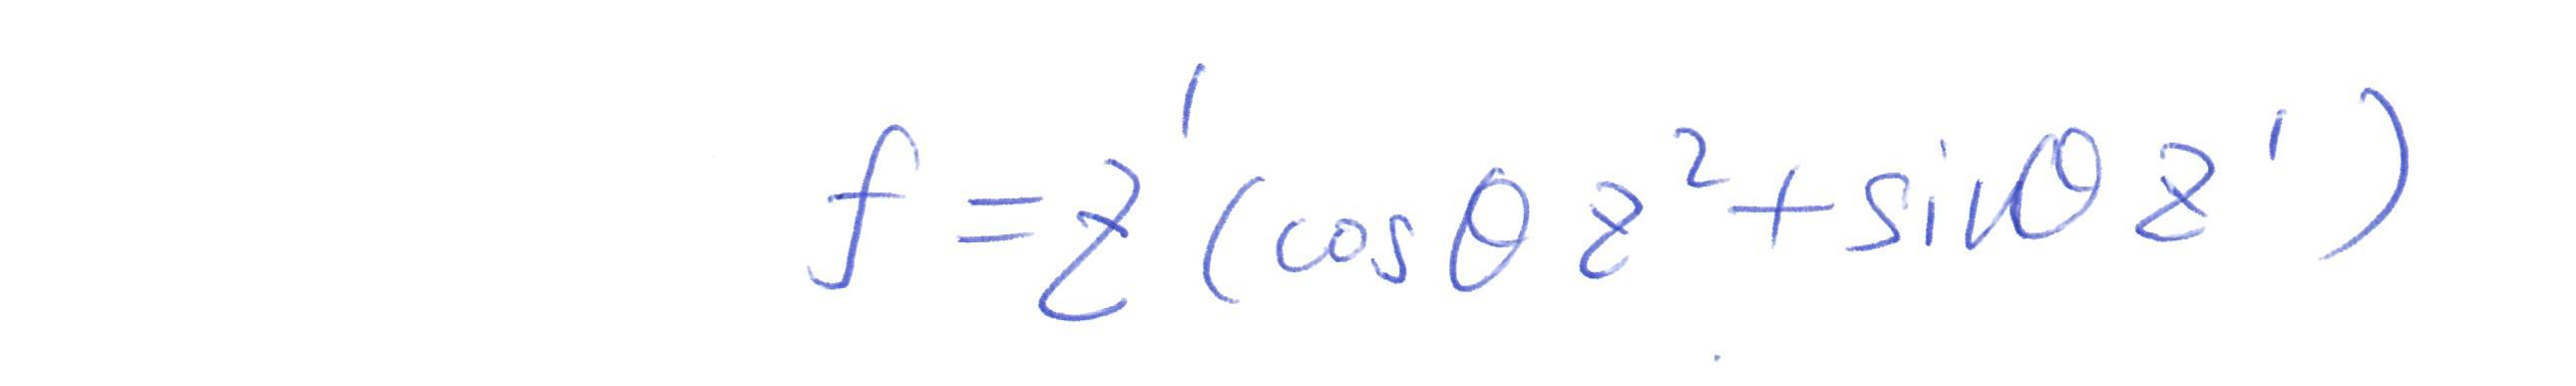 f = z¹(cosθ z² + sinθ z¹)